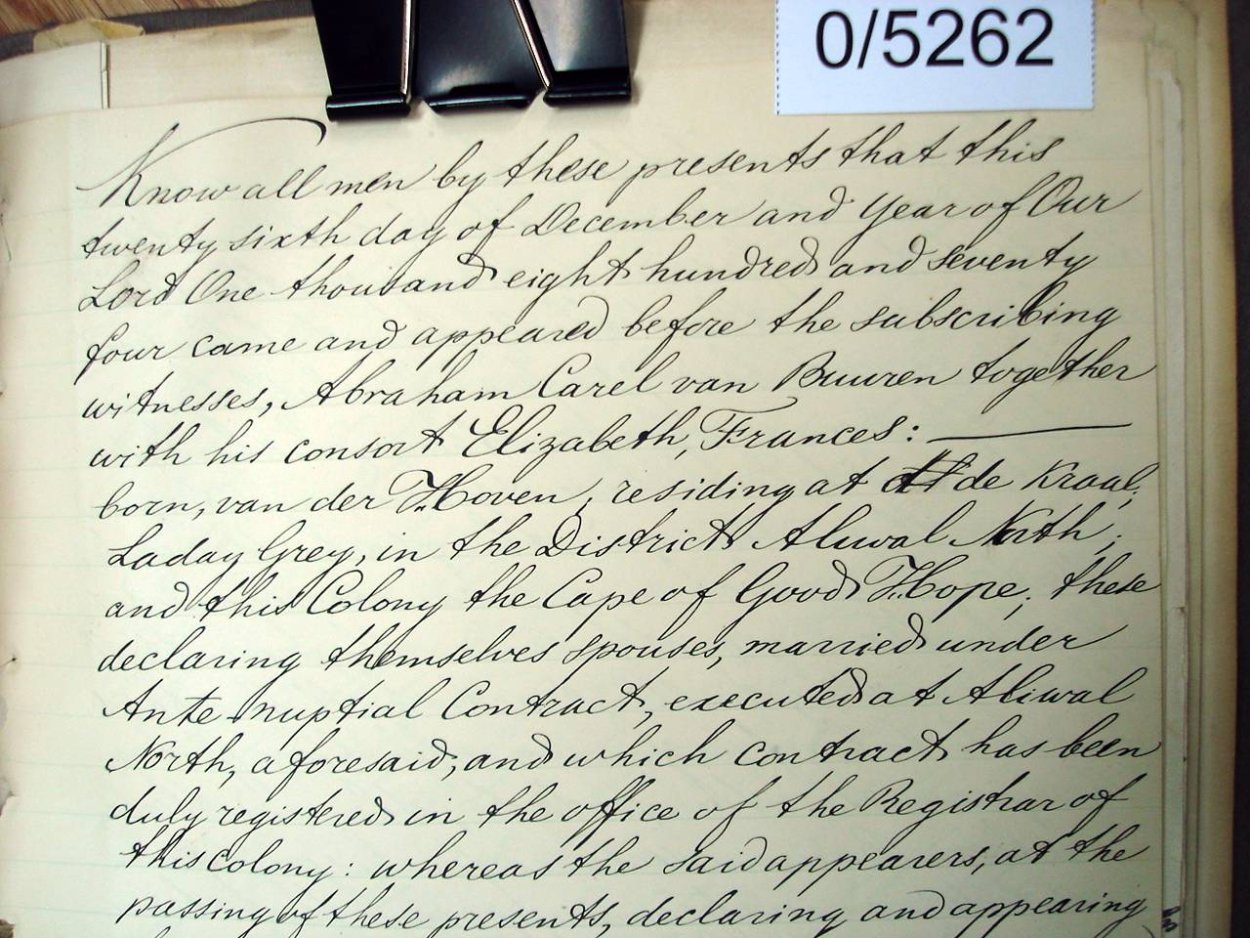 0/5262
Know all men by these presents that this
twenty sixth day of December and Year of Our
Lord One thousand eight hundred and seventy
four came and appeared before the subscribing
witnesses, Abraham Carel van Buuren together
with his consort Elizabeth, Frances:
born, van der Hoven, residing at de Kraal,
Laday Grey, in the District Aluwal North;
and this Colony the Cape of Good Hope; these
declaring themselves spouses, married under
Ante nuptial Contract, executed at Aliwal
North, aforesaid, and which contract has been
duly registered in the office of the Registrar of
this colony: whereas the said appearers, at the
passing of these presents, declaring and appearing